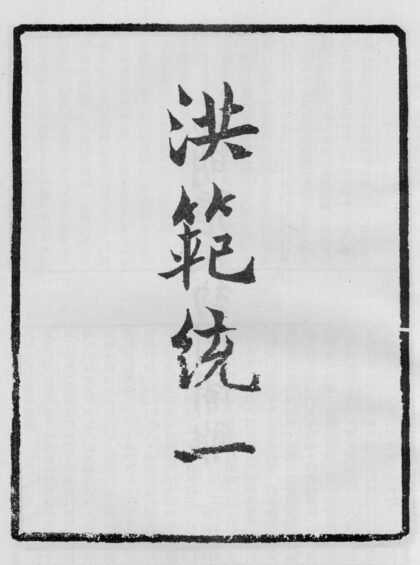 洪範統一